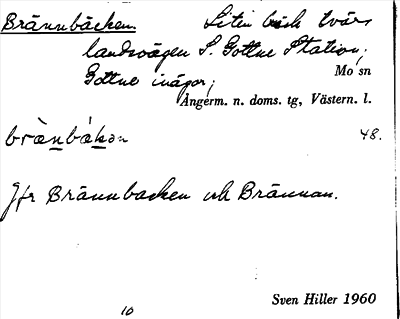 Brännbäcken. Liten bäck tvärs
landsvägen S. Gottne Station.
Gottne inägor;
Mo sn
Ångerm. n. doms. tg, Västern. l.
brànbǽkan 48.
Jfr Brännbacken och Brännan.
Sven Hiller 1960
10